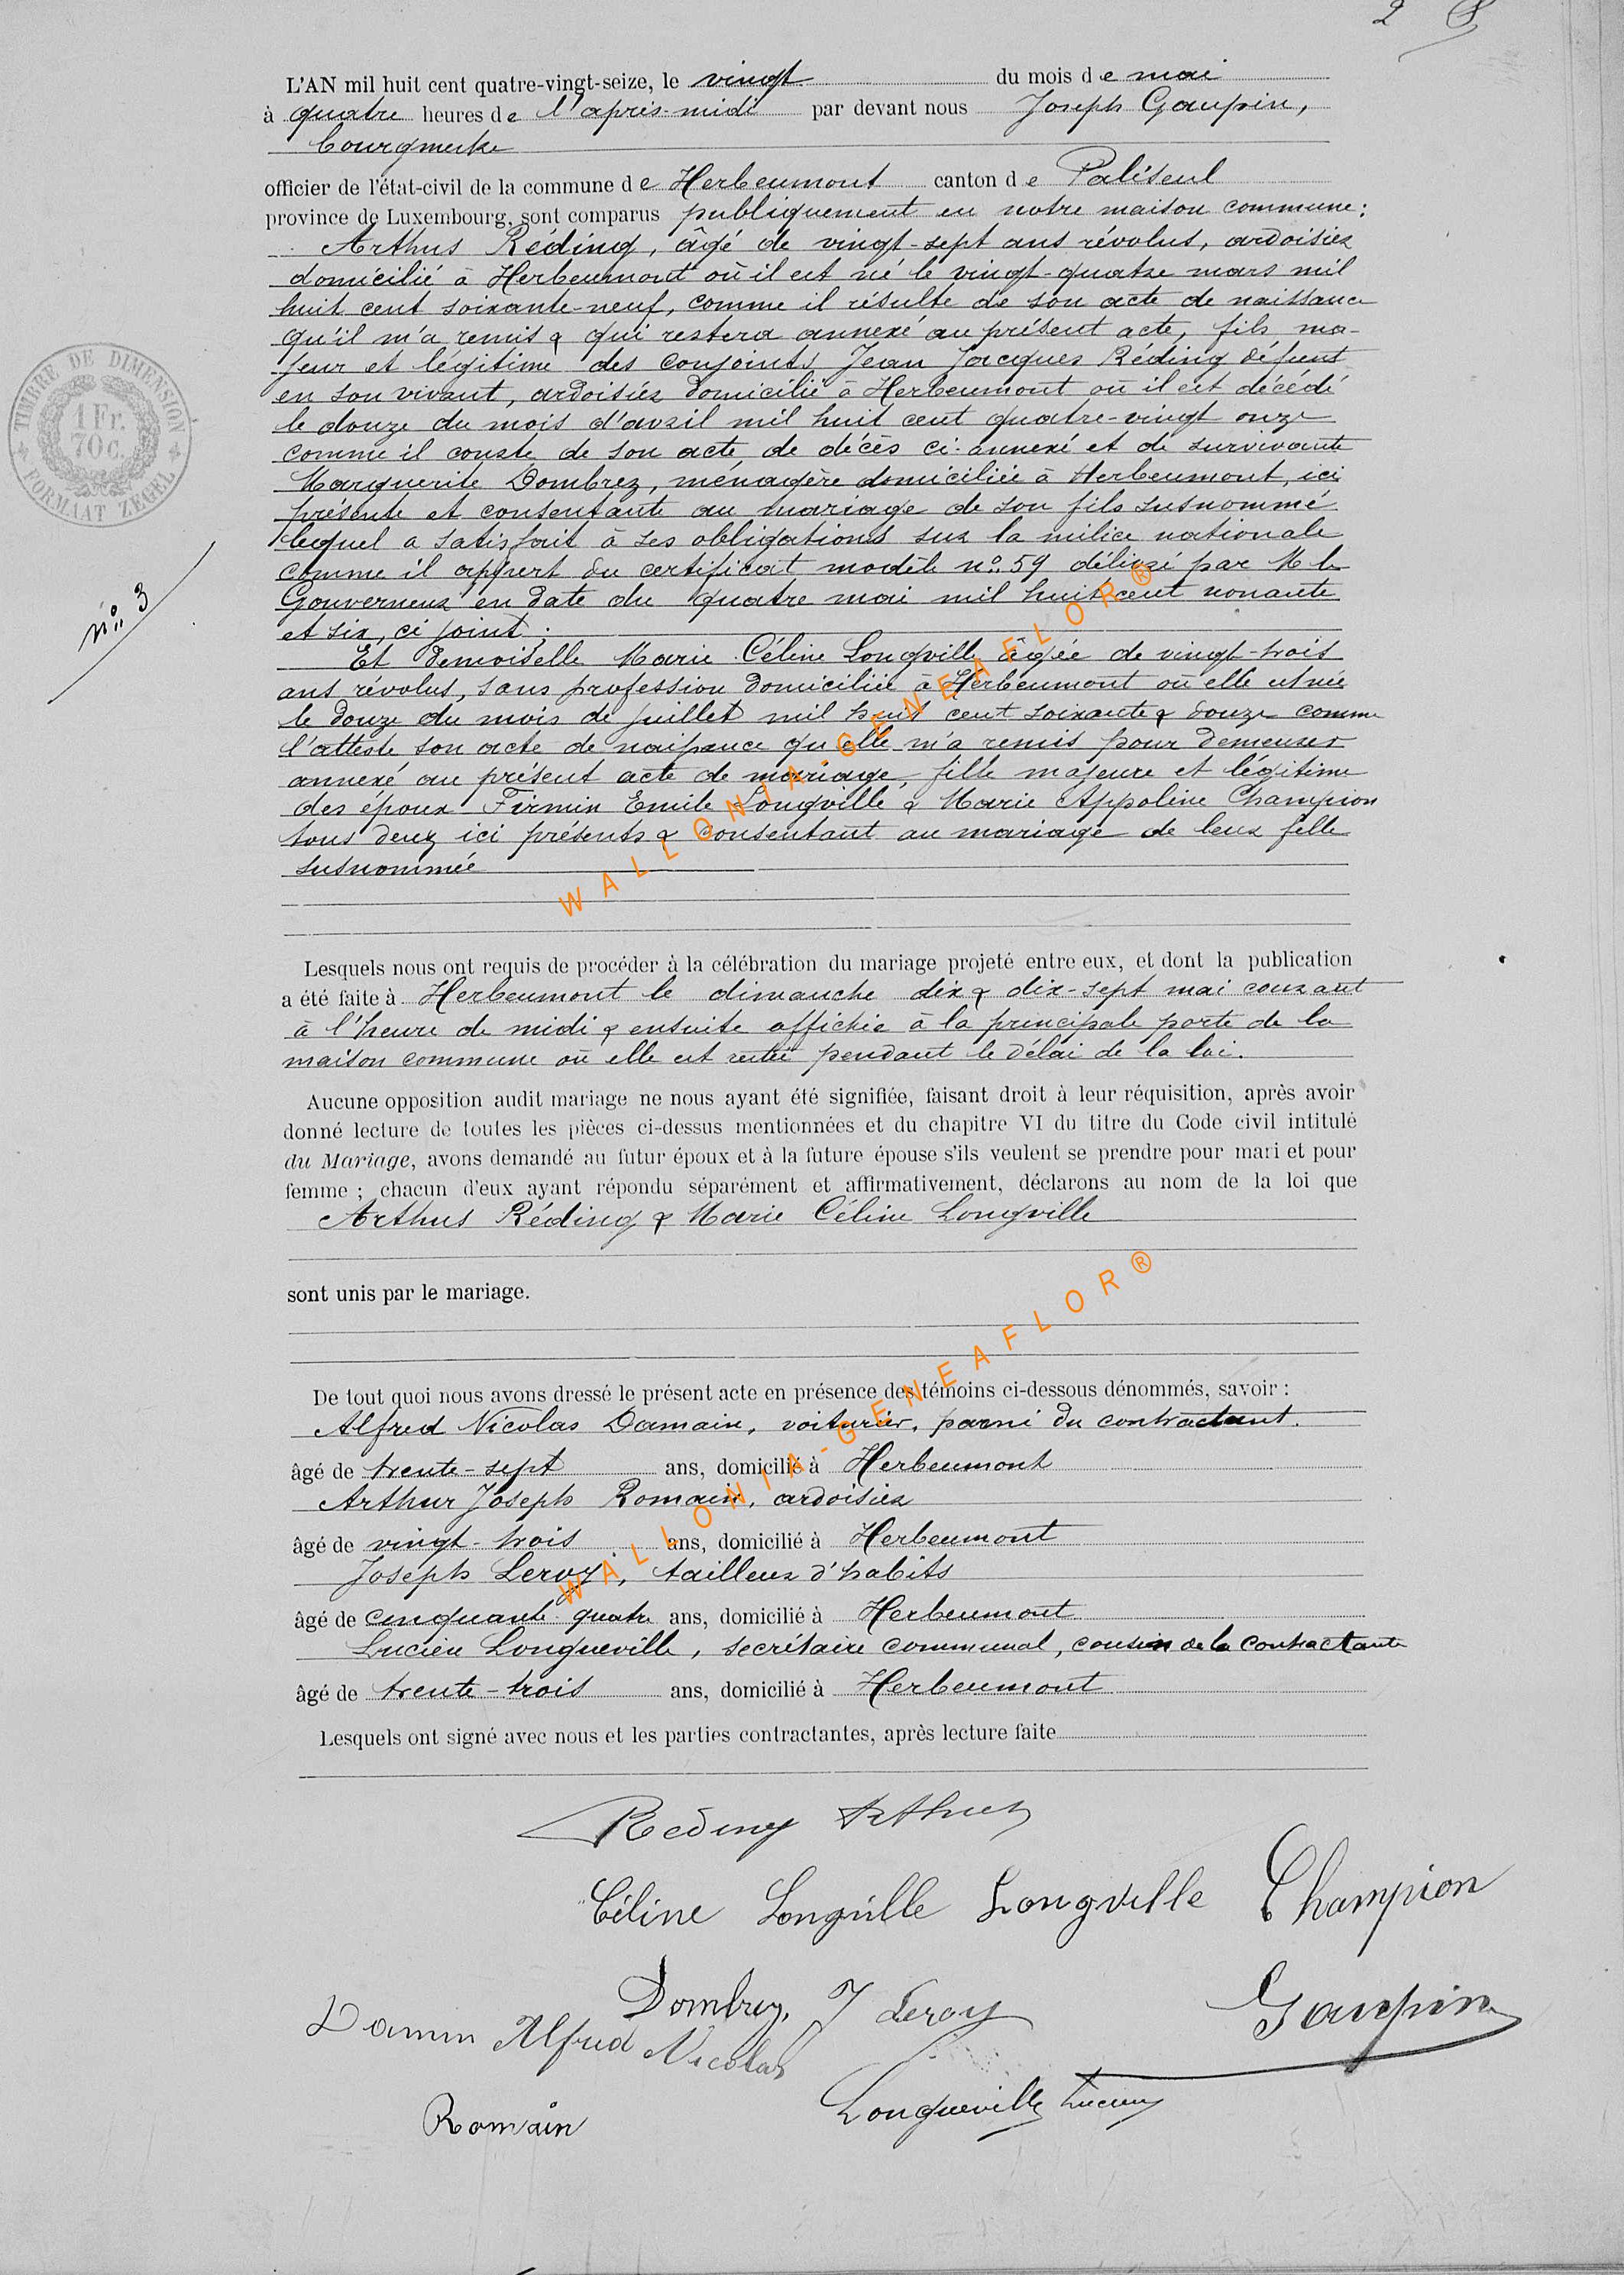 2
L'AN mil huit cent quatre-vingt-seize, le vingt du mois de mai
à quatre heures de l'après-midi par devant nous Joseph Gaupin,
bourgmestre
officier de l'état-civil de la commune de Herbeumont canton de Paliseul
province de Luxembourg, sont comparus publiquement en notre maison commune:
Arthur Réding, âgé de vingt-sept ans révolus, ardoisier
domicilié à Herbeumont où il est né le vingt-quatre mars mil
huit cent soixante-neuf, comme il résulte de son acte de naissance
qu'il m'a remis & qui restera annexé au présent acte, fils ma-
jeur et légitime des conjoints Jean Jacques Réding défunt
en son vivant, ardoisier domicilié à Herbeumont où il est décédé
le douze du mois d'avril mil huit cent quatre-vingt onze
comme il conste de son acte de décès ci-annexé et de survivante
Marguerite Dombrez, ménagère domiciliée à Herbeumont, ici
présente et consentante au mariage de son fils susnommé
lequel a satisfait à ses obligations sur la milice nationale
comme il appert du certificat modèle n° 59 délivré par M le
Gouverneur en date du quatre mai mil huit cent nonante
et six, ci joint;
n° 3
Et demoiselle Marie Céline Longville âgée de vingt-trois
ans révolus, sans profession domiciliée à Herbeumont où elle est née
le douze du mois de juillet mil huit cent soixante & douze comme
l'atteste son acte de naissance qu'elle m'a remis pour demeurer
annexé au présent acte de mariage, fille majeure et légitime
des époux Firmin Emile Longville & Marie Appoline Champion
tous deux ici présents & consentant au mariage de leur fille
susnommée
Lesquels nous ont requis de procéder à la célébration du mariage projeté entre eux, et dont la publication
a été faite à Herbeumont le dimanche dix & dix-sept mai courant
à l'heure de midi & ensuite affichée à la principale porte de la
maison commune où elle est restée pendant le délai de la loi.
Aucune opposition audit mariage ne nous ayant été signifiée, faisant droit à leur réquisition, après avoir
donné lecture de toutes les pièces ci-dessus mentionnées et du chapitre VI du titre du Code civil intitulé
du Mariage, avons demandé au futur époux et à la future épouse s'ils veulent se prendre pour mari et pour
femme ; chacun d'eux ayant répondu séparément et affirmativement, déclarons au nom de la loi que
Arthur Réding & Marie Céline Longville
sont unis par le mariage.
De tout quoi nous avons dressé le présent acte en présence des témoins ci-dessous dénommés, savoir :
Alfred Nicolas Damain, voiturier, parmi du contractant.
âgé de trente-sept ans, domicilié à Herbeumont
Arthur Joseph Romain, ardoisier
âgé de vingt-trois ans, domicilié à Herbeumont
Joseph Leroy, tailleur d'habits
âgé de cinquante-quatre ans, domicilié à Herbeumont
Lucien Longueville, secrétaire communal, cousin de la contractante
âgé de trente-trois ans, domicilié à Herbeumont
Lesquels ont signé avec nous et les parties contractantes, après lecture faite
Réding Arthur
Céline Longville Longville Champion
Dombrez. J Leroy Gaupin
Damin Alfred Nicolas
Longueville Lucien
Romain
TIMBRE DE DIMENSION
1 Fr.
70 c.
FORMAAT ZEGEL
WALLONIA-GENEAFLOR®
WALLONIA-GENEAFLOR®